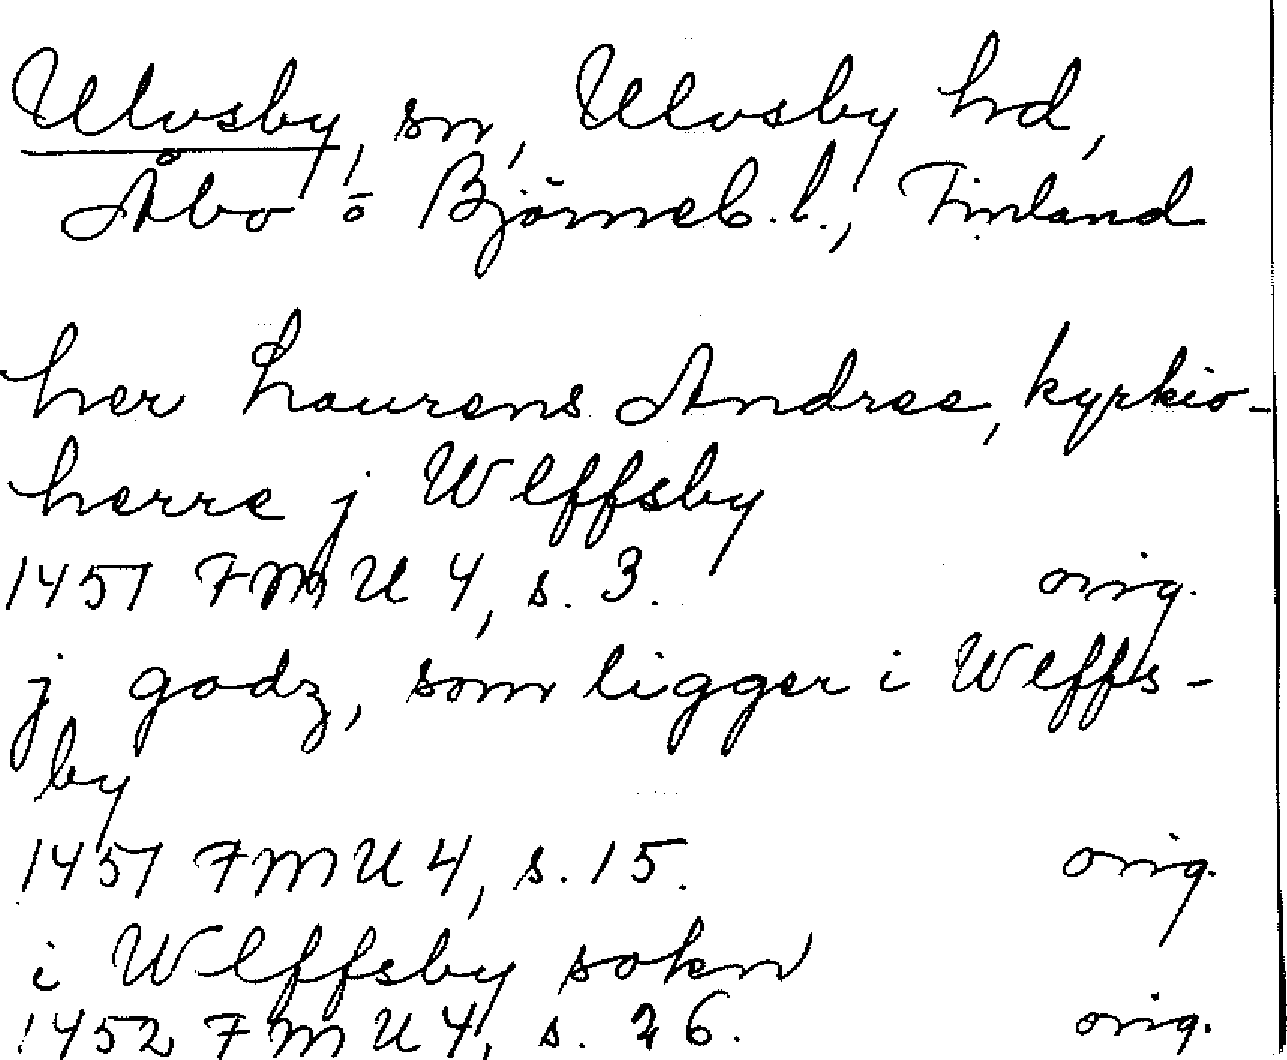 Ulvsby, sn, Ulvsby hd,
Åbo o Björneb. l., Finland
her Laurens Andree, kyrkio-
herre j Wlffsby
1451 FMU 4, s. 3. orig.
j godz, som ligger i Wlffs-
by
1451 FMU 4, s. 15. orig.
i Wlffsby sokn
1452 FMU 4, s. 26. orig.